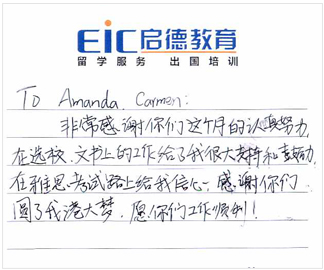 EIC启德教育
留学服务 出国培训
To Amanda, Carmen:
非常感谢你们这个月的认真努力,
在选校、文书上的工作给了我很大支持和鼓励,
在雅思考试路上给我信心. 感谢你们
圆了我港大梦. 愿你们工作顺利!